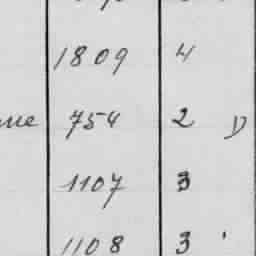 1809 4
754 2
1107 3
1108 3